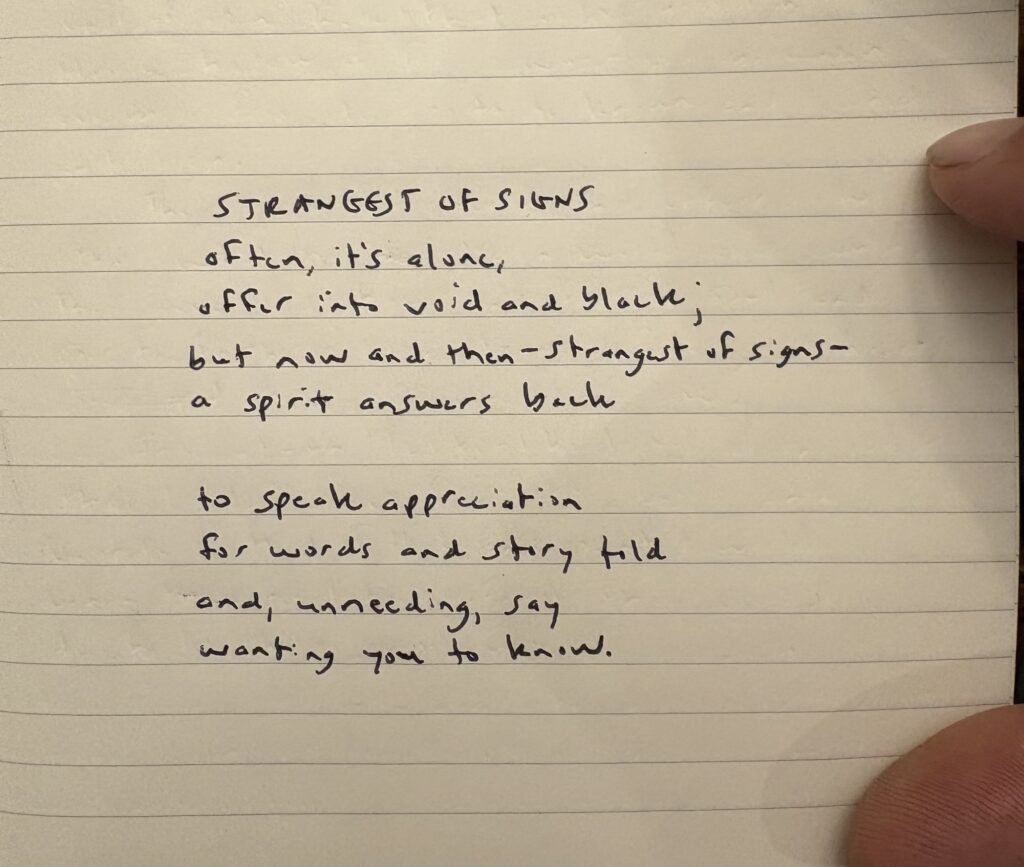 STRANGEST OF SIGNS
often, it's alone,
offer into void and black;
but now and then—strangest of signs—
a spirit answers back
to speak appreciation
for words and story told
and, unneeding, say
wanting you to know.